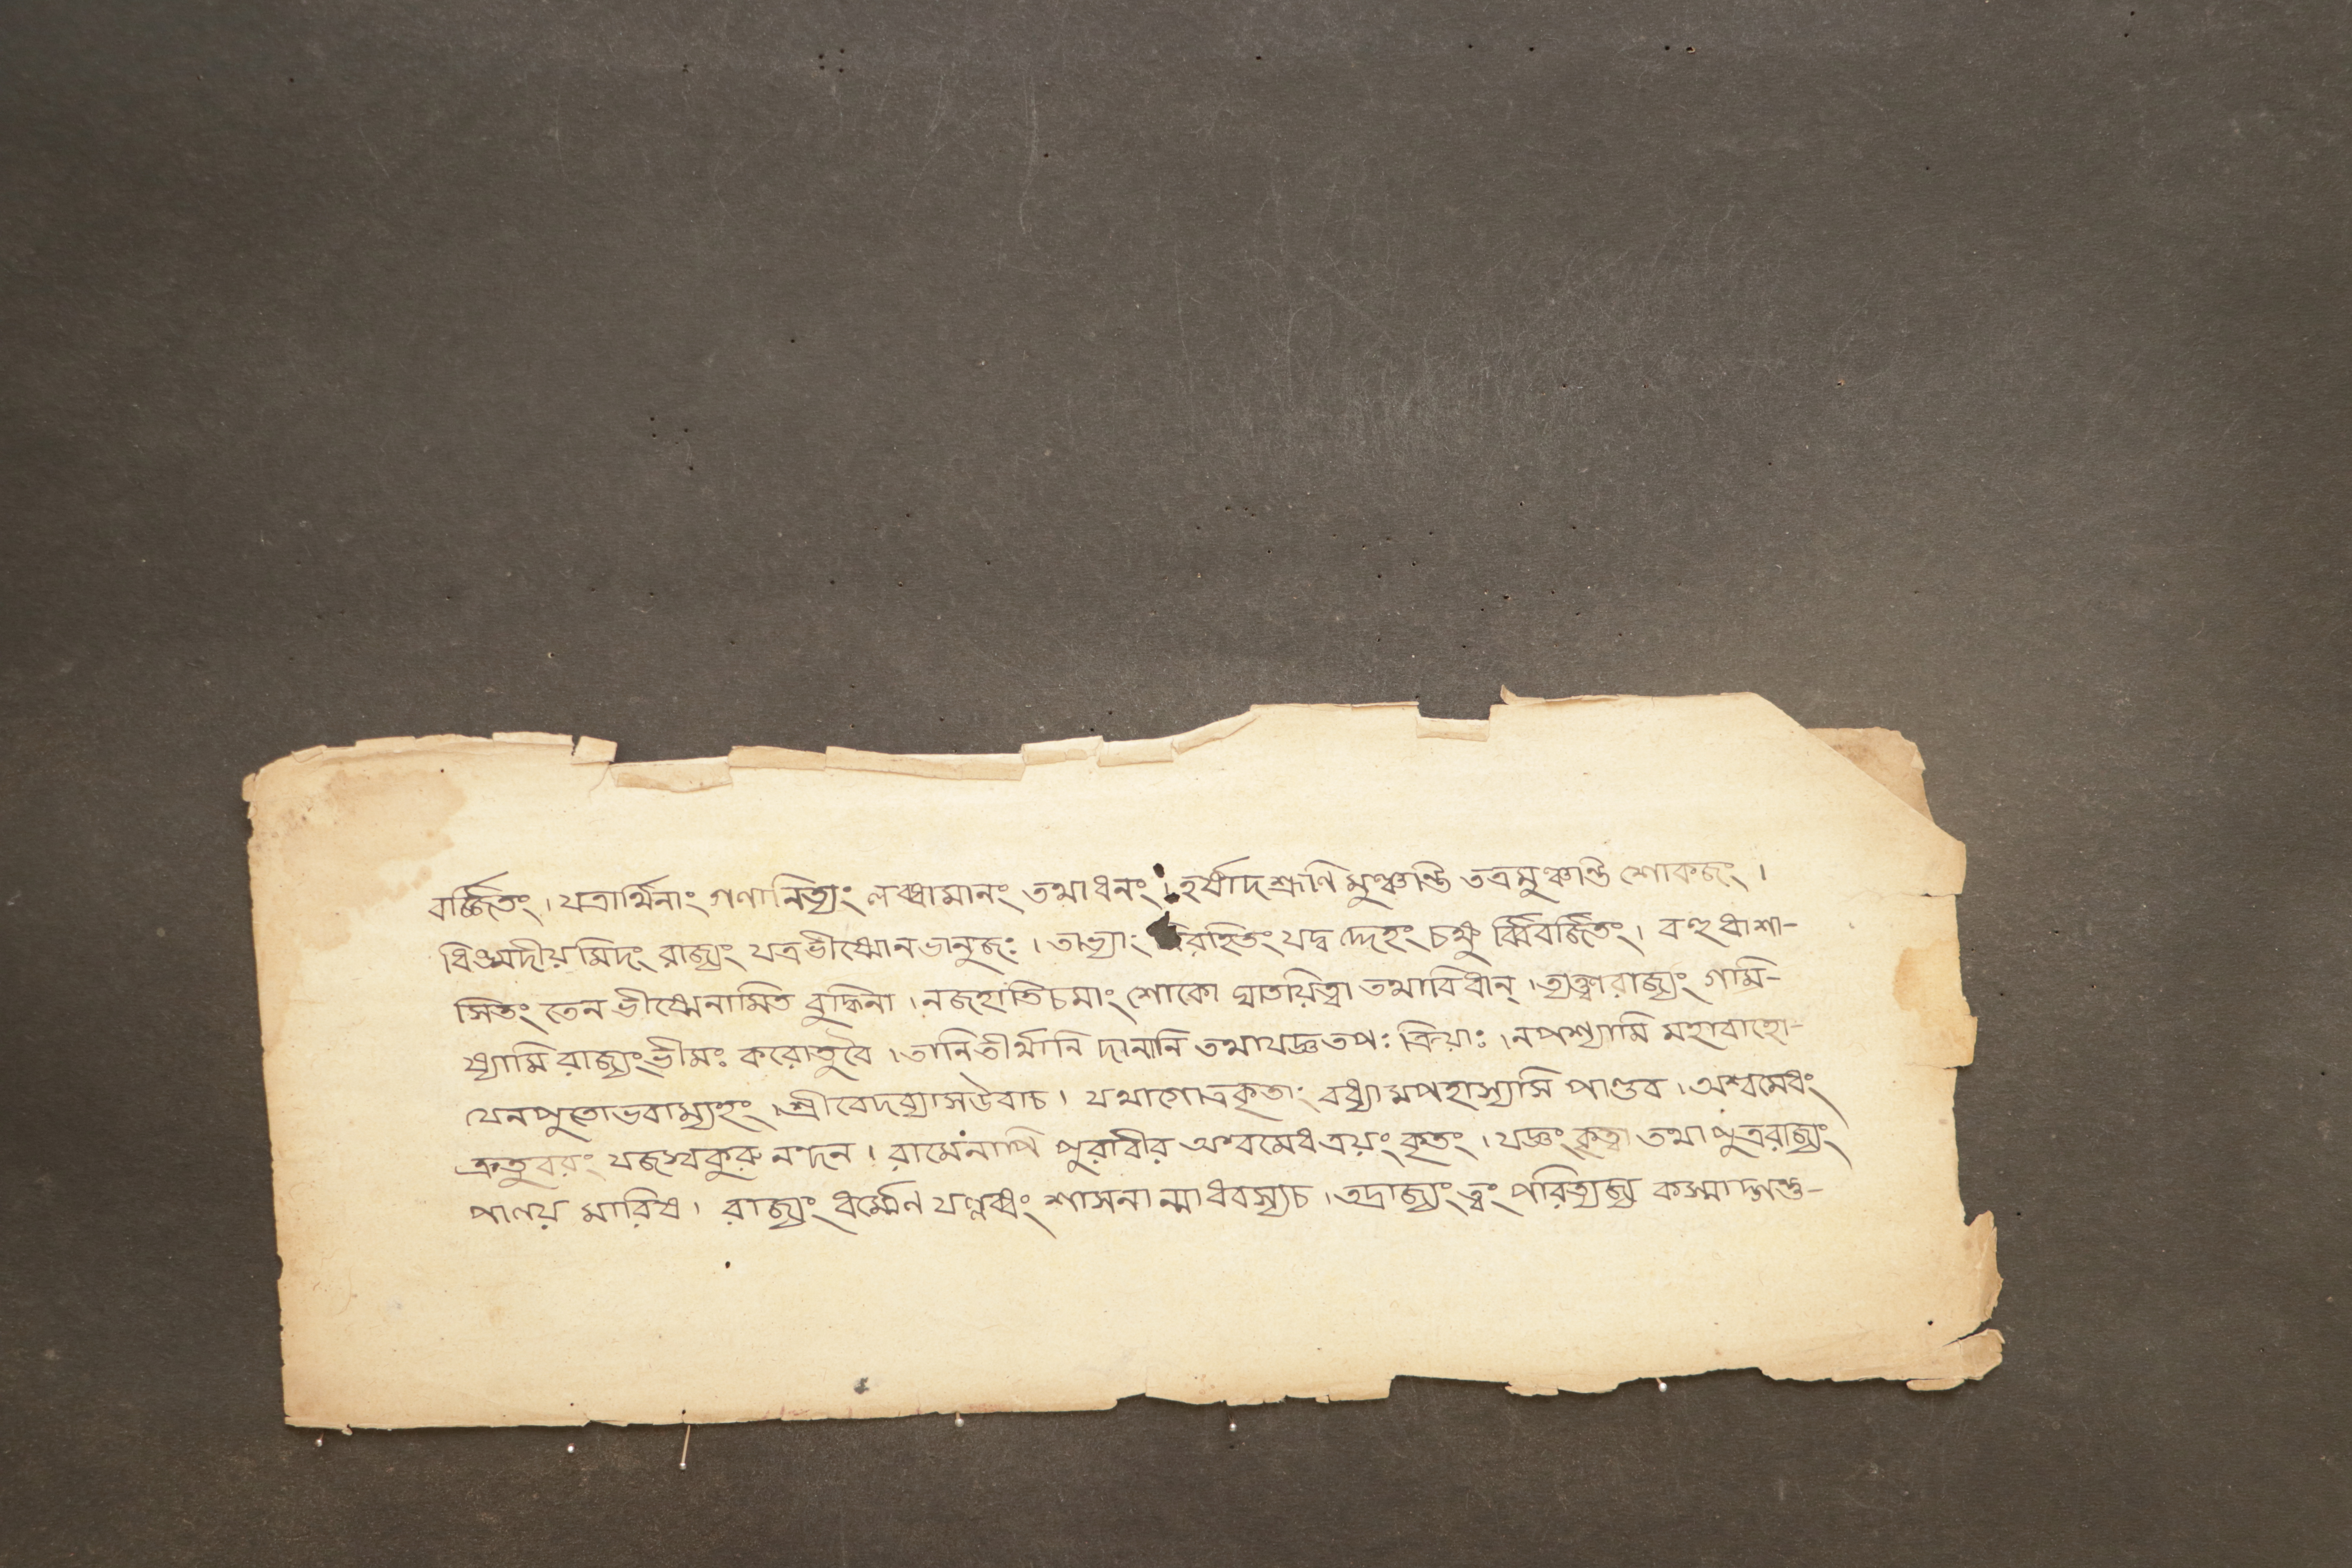 বর্জ্জিতং। যত্রার্থিনাং গণানিত্যং লব্ধ্বামানং তথাধনং। হর্ষাদশ্রূণি মুঞ্চন্তি তত্রমুঞ্চন্তি শোকজং।
ধিঙ্মদীয়মিদং রাজ্যং যত্রভীষ্মোনভানুজঃ। তাভ্যাং বিরহিতং যদ্ব দ্দেহং চক্ষু র্ব্বিবর্জ্জিতং। বহুধাশা-
সিতং তেন ভীষ্মেনামিত বুদ্ধিনা। নজহাতিচমাং শোকো ঘাতয়িত্বা তথাবিধান্। ত্যক্ত্বারাজ্যং গমি-
ষ্যামি রাজ্যংভীমঃ করোতুবৈ। তানিতীর্থানি দানানি তথাযজ্ঞতপঃ ক্রিয়াঃ। নপশ্যামি মহাবাহো-
যেনপুতোভবাম্যহং। শ্রীবেদব্যাসউবাচ। যথাগোত্রকৃতাং বধ্যামপহাস্যসি পাণ্ডব। অশ্বমেধং
ক্রতুবরং যজস্বকুরু নন্দন। রামেনাপি পুরাবীর অশ্বমেধত্রয়ং কৃতং। যজ্ঞং কৃত্বা তথা পুত্ররাজ্যং
পালয় মারিষ। রাজ্যং ধর্ম্মেণ যল্লব্ধং শাসনা ন্মাধবস্যচ। তদ্রাজ্যং ত্বং পরিত্যজ্য কস্মাদ্গন্তু-